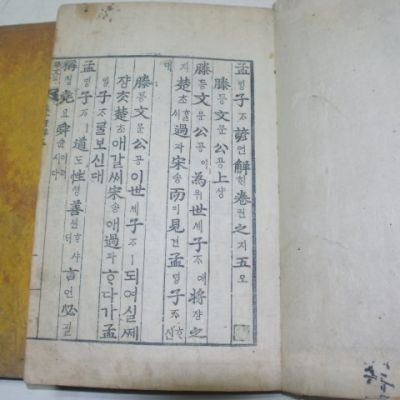 孟ᄆᆡᆼ子ᄌᆞ諺언解ᄒᆡ卷권之지五오
滕등文문公공上샹
滕등文문公공이爲위世셰子ᄌᆞ애將쟝之
지楚초ᄒᆞᆯᄉᆡ過과宋송而이見견孟ᄆᆡᆼ子ᄌᆞᄒᆞ신
대
滕등文문公공이世셰子ᄌᆞㅣ되여실ᄶᅦ
쟝ᄎᆞᆺ楚초애갈ᄉᆡ宋송애過과ᄒᆞ다가孟
ᄆᆡᆼ子ᄌᆞᄅᆞᆯ보신대
孟ᄆᆡᆼ子ᄌᆞㅣ道도性셩善션ᄒᆞ샤ᄃᆡ言언必필
稱칭堯요舜슌이러시다